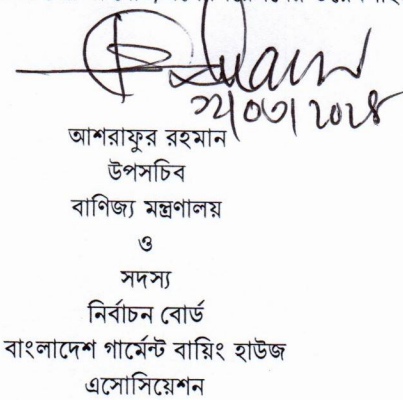 আশরাফুর রহমান
উপসচিব
বাণিজ্য মন্ত্রণালয়
ও
সদস্য
নির্বাচন বোর্ড
বাংলাদেশ গার্মেন্ট বায়িং হাউজ
এসোসিয়েশন